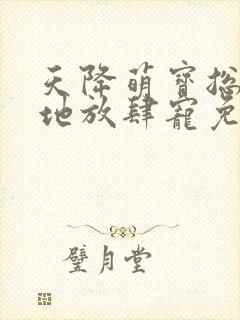 天降萌寶總
地放肆寵免
璧月堂